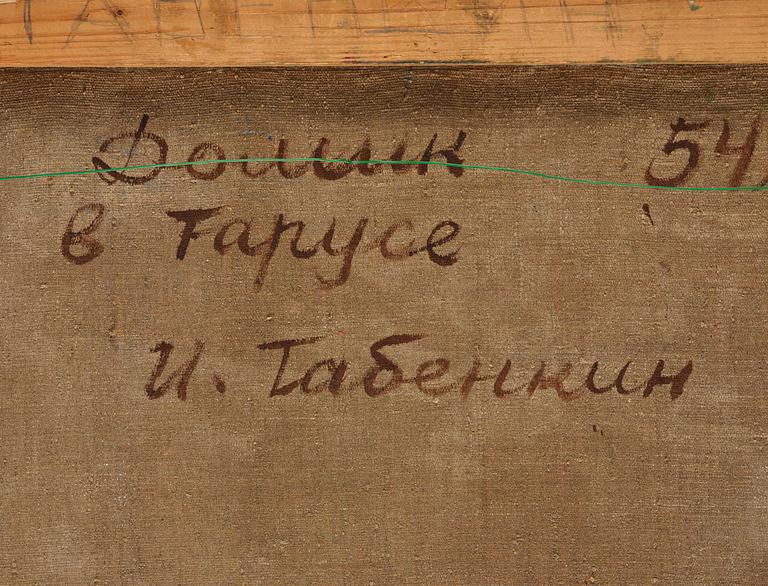 Домик 54
в Тарусе
И. Табенкин